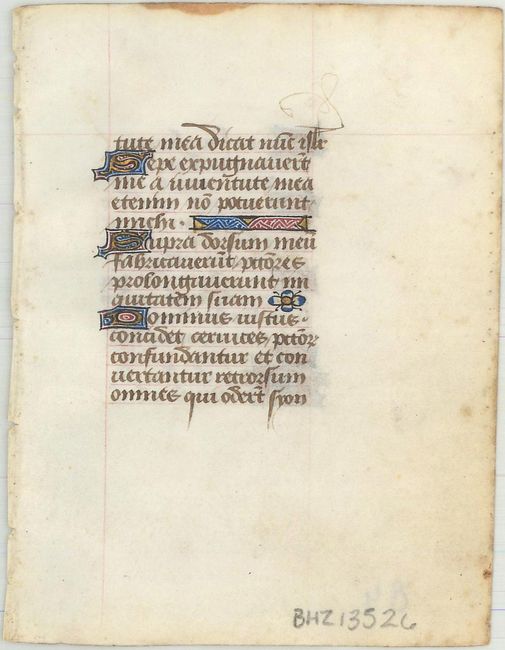 tute mea dicat nūc isłr
Sepe expugnauerūt
me a iuuentute mea
etenim nō potuerunt
michi ·
Supra dorsum meū
fabricauerūt pctōres
prolongauerunt ini
quitatem suam
Dominus iustus ·
concidet ceruices pctōr
confundantur et con
uertantur retrorsum
omnes qui oderūt syon
BHZ13526